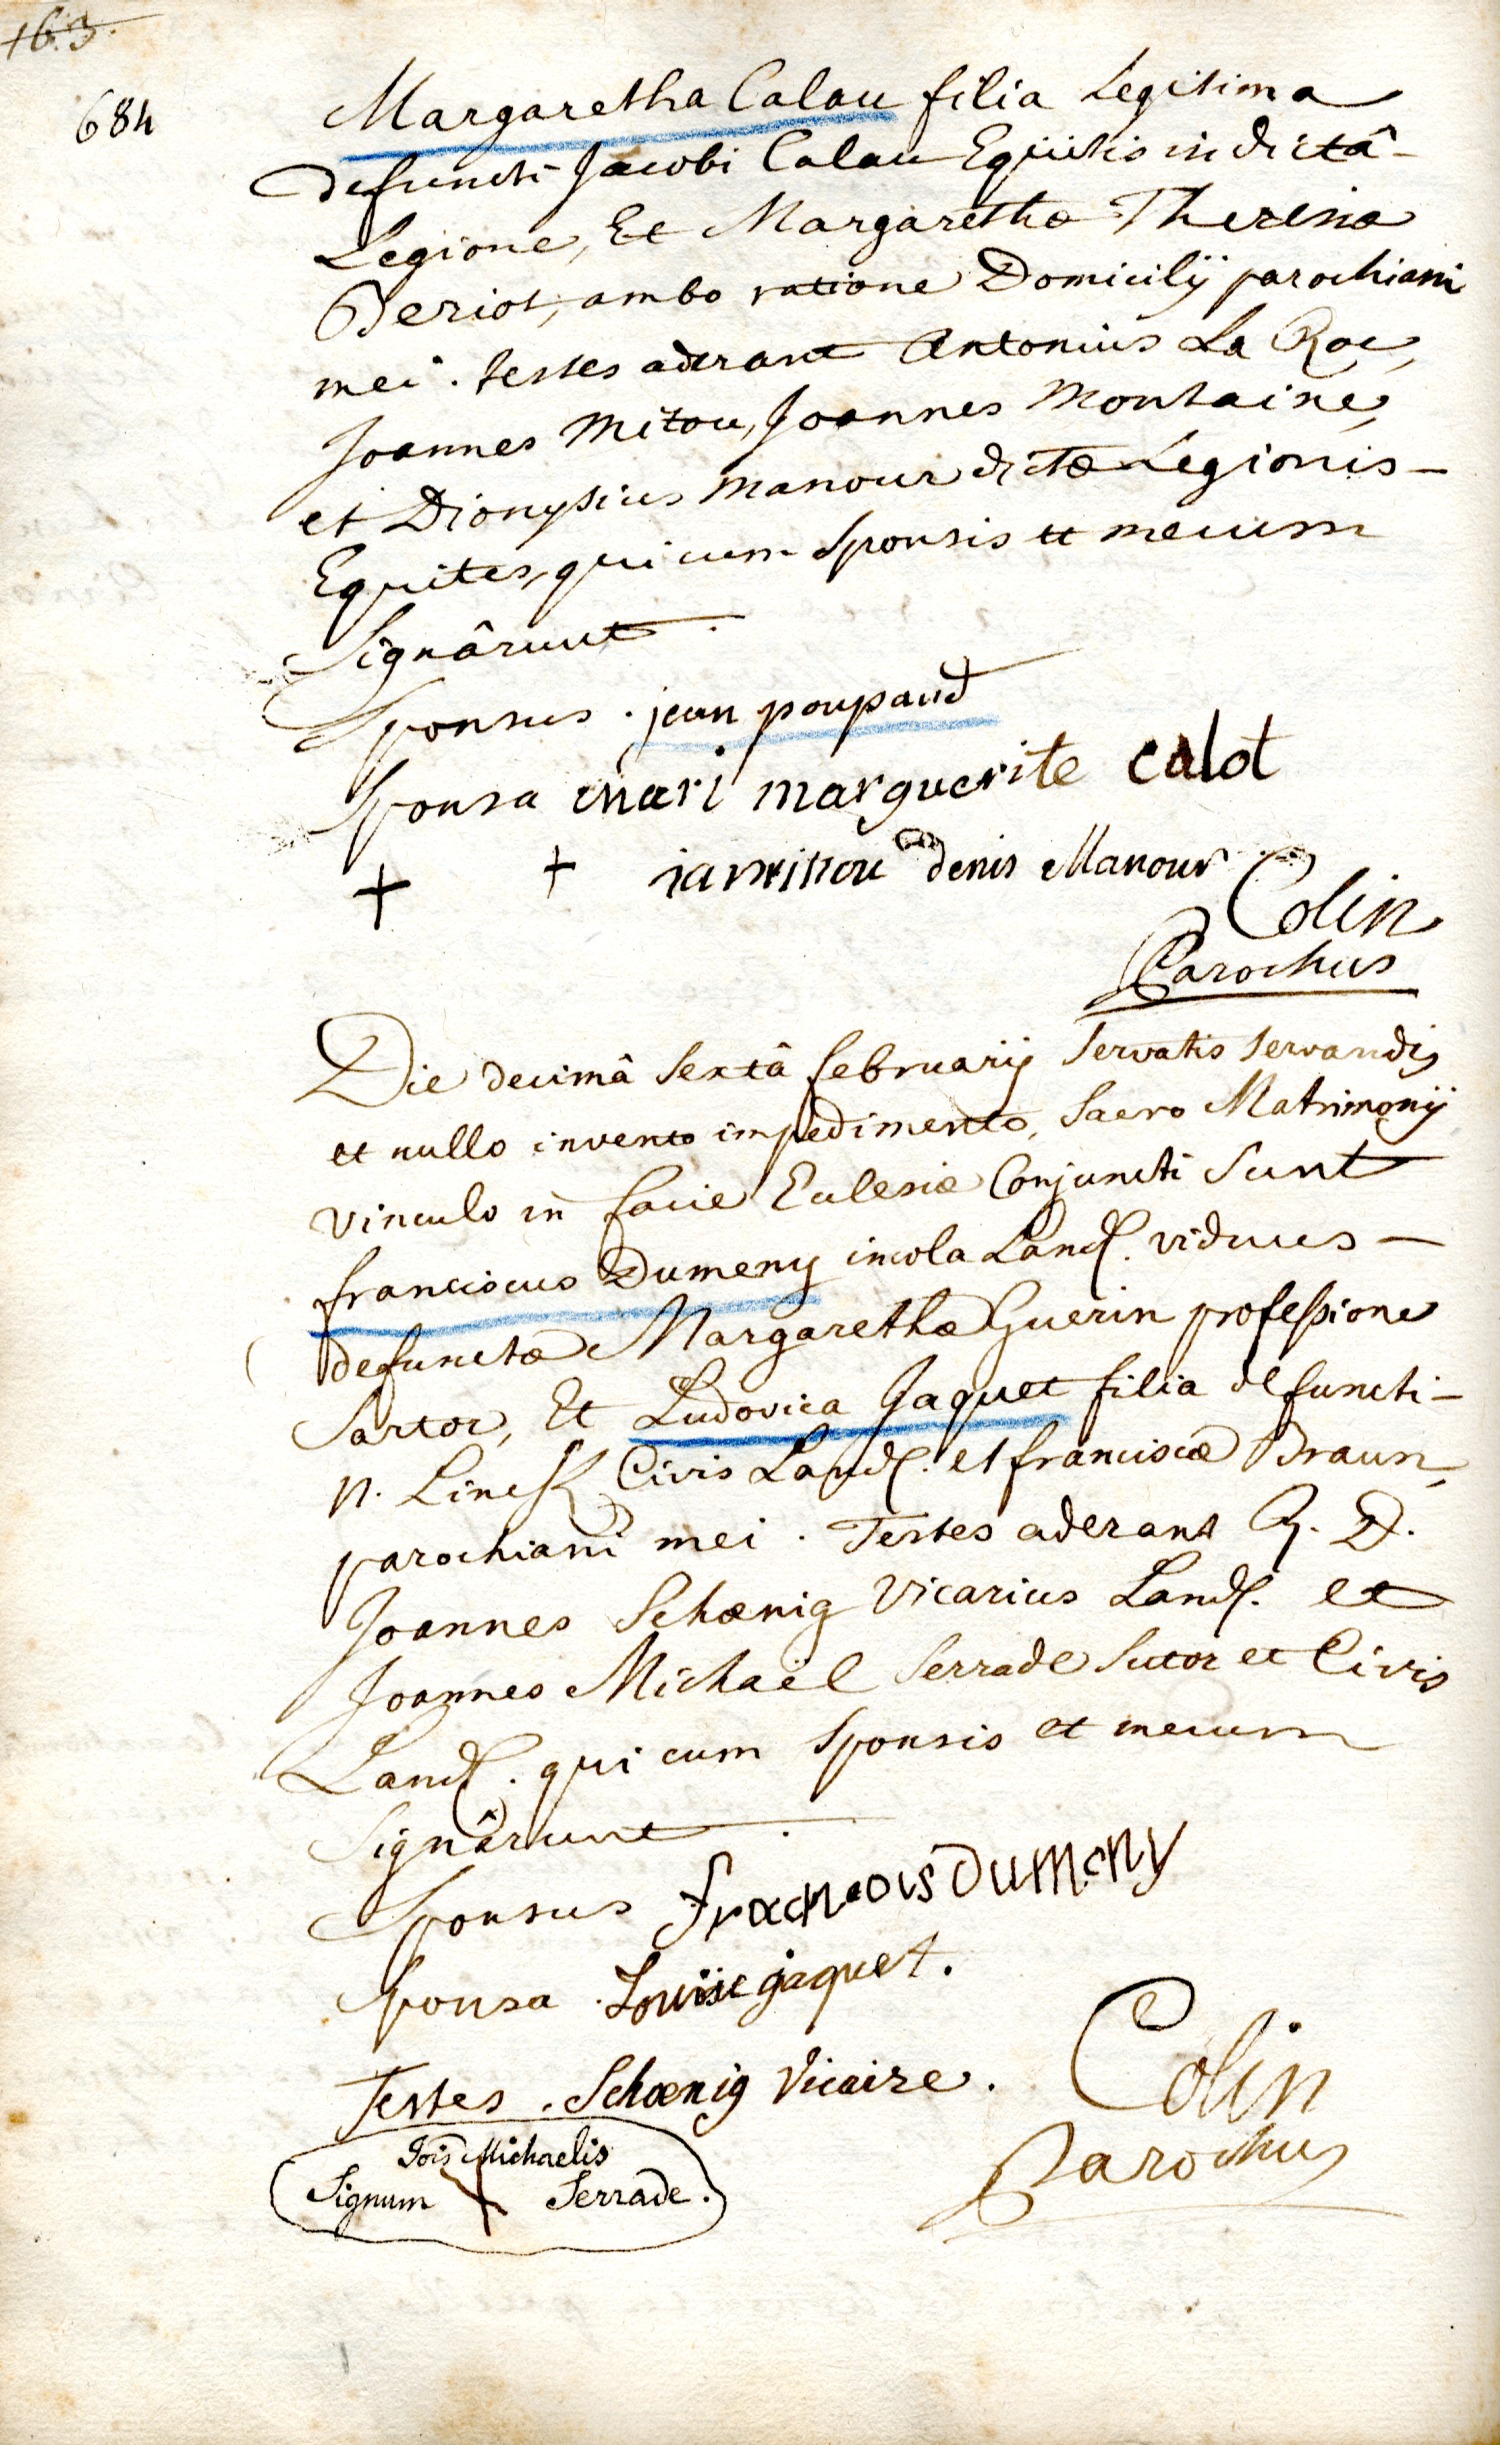 163.
684
Margaretha Calau filia Legitima
defuncti Jacobi Calau Equitis in dictâ
Legione, Et Margarethæ Theresiæ
Beriot, ambo ratione Domicilÿ parochiani
mei. testes aderant Antonius La Roc,
Joannes Mitou, Joannes Montaine,
et Dionysius Manour dictæ Legionis
Equites, qui cum Sponsis et mecum
Signârunt.
Sponsus. jean poupaud
Sponsa mari marguerite calot
+ + denis Manour
Colin
Parochus
Die decimâ Sextâ februarÿ Servatis Servandis
et nullo invento impedimento, Sacro Matrimonÿ
vinculo in facie Eclesiæ Conjuncti Sunt
franciscus Dumeny incola Land. viduus
defunctæ Margarethæ Guerin professione
Sartor, Et Ludovica Jaquet filia defuncti
N. Linck Civis Land. et franciscæ Braun,
parochiani mei. Testes aderant R. D.
Joannes Schœnig Vicarius Land. et
Joannes Michaël Serrade Sutor et Civis
Land. qui cum Sponsis et mecum
Signârunt.
Sponsus Dumeny
Sponsa. Louise jaquet.
Testes. Schœnig Vicaire.
Colin
Parochus
Jois Michaelis
Signum Serrade.